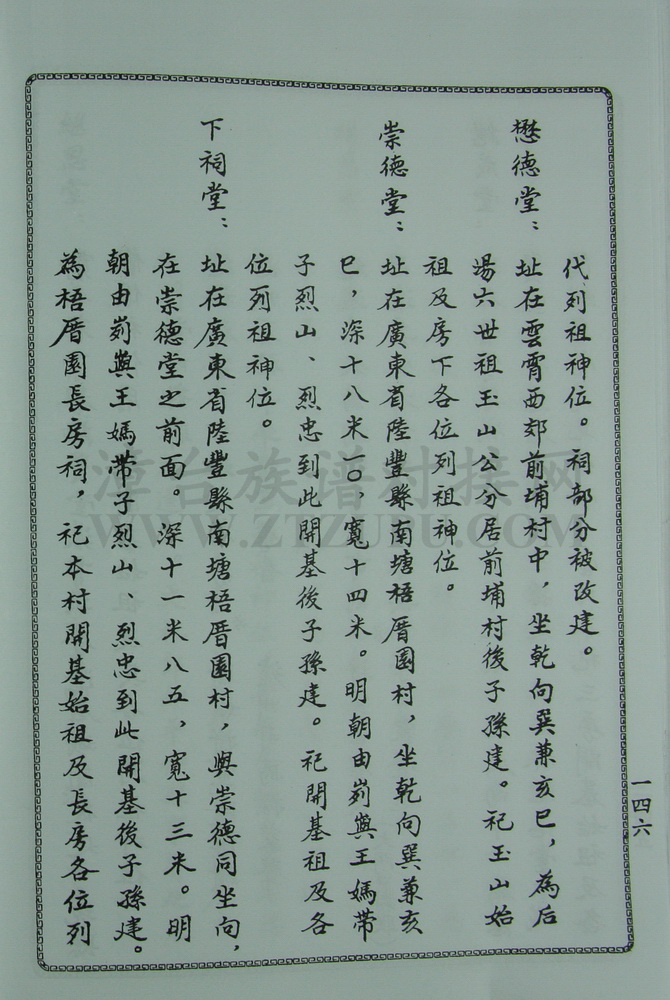 代列祖神位。祠部分被改建。
懋德堂：址在雲霄西郊前埔村中，坐乾向巽兼亥巳，為后
場六世祖玉山公分居前埔村後子孫建。祀玉山始
祖及房下各位列祖神位。
崇德堂：址在廣東省陸豐縣南塘梧厝園村，坐乾向巽兼亥
巳，深十八米一〇，寬十四米。明朝由峛與王媽帶
子烈山、烈忠到此開基後子孫建。祀開基祖及各
位列祖神位。
下祠堂：址在廣東省陸豐縣南塘梧厝園村，與崇德同坐向，
在崇德堂之前面。深十一米八五，寬十三米。明
朝由峛與王媽帶子烈山、烈忠到此開基後子孫建。
為梧厝園長房祠，祀本村開基始祖及長房各位列
一四六
漳台族谱对接网
WWW.ZTZUPU.COM